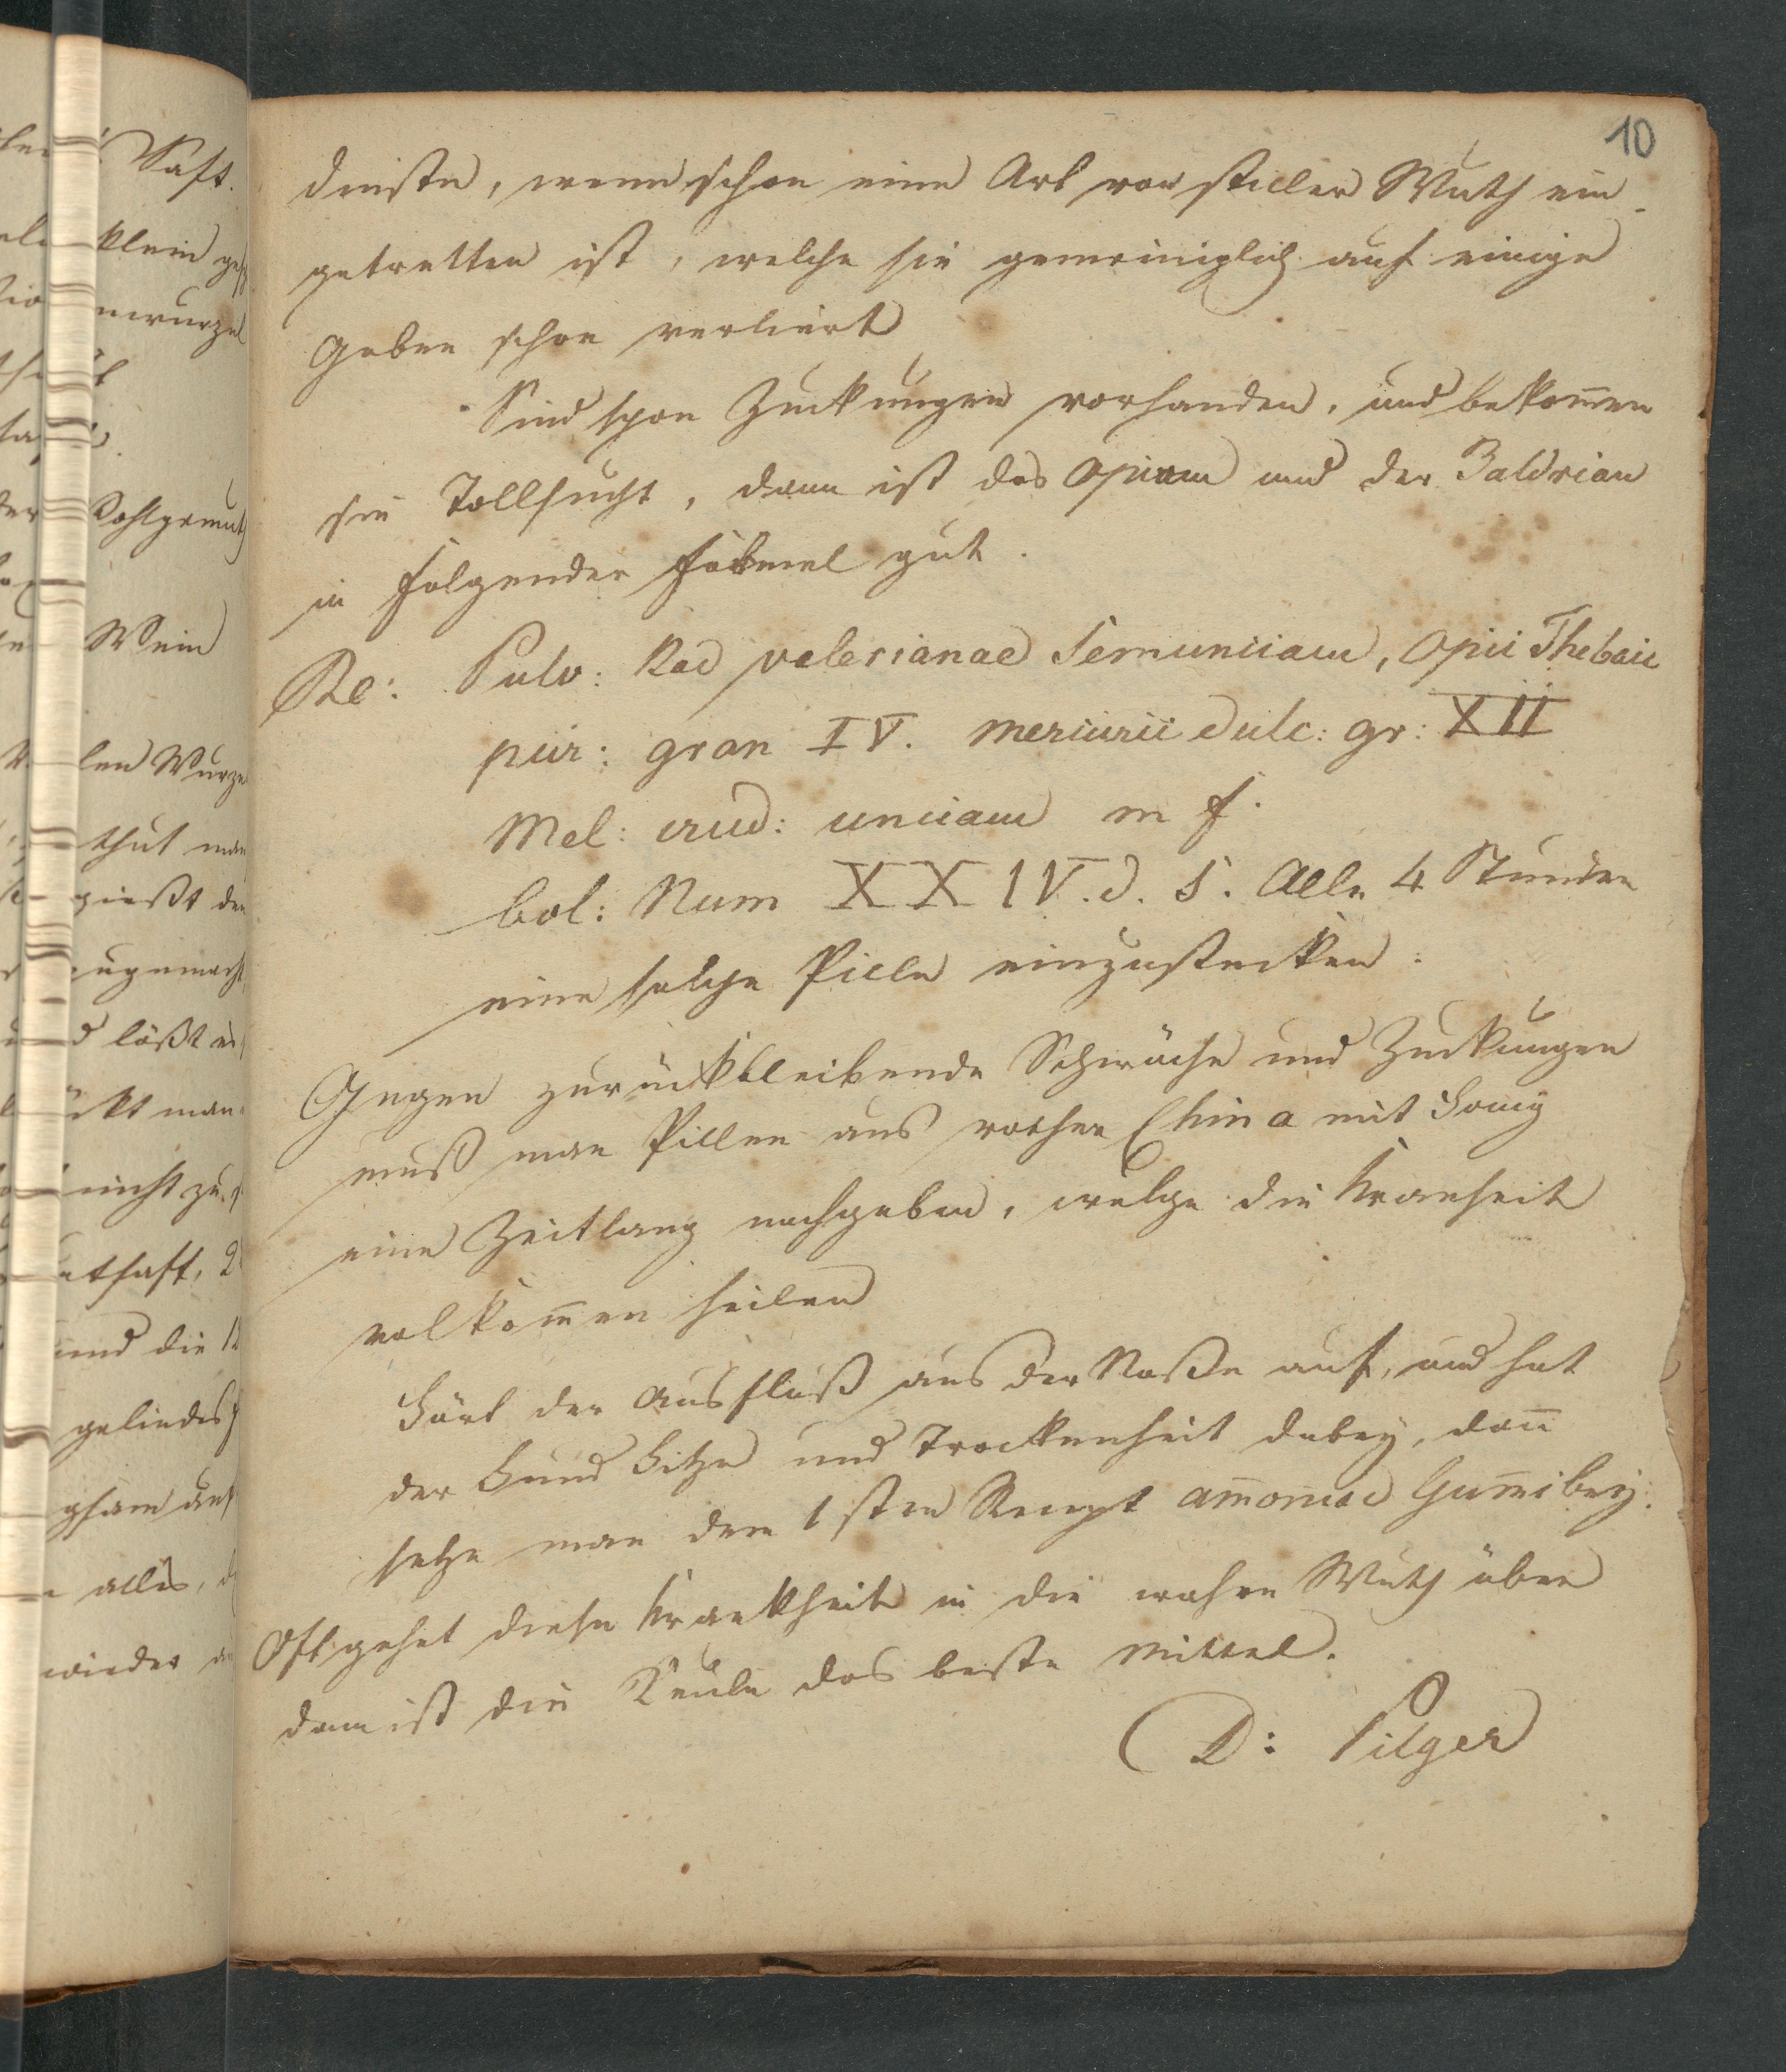 10
dienste, wenn schon eine Art von stiller Wuth ein-
getretten ist, welche sie gemeiniglich auf einige
Gaben schon verliert
Sind schon Zuckungen vorhanden, und bekom̄en
sie Tollsucht, dann ist das Opium und der Baldrian
in folgender Formel gut.
Re: Pulv: Rad valerianae Semunciam, Opii Thebaic
pur: gran IV. Mercurii dulc: gr: XII
Mel: crud: unciam m f.
bol: Num XXIV. d. S. Alle 4 Stunden
eine solche Pille einzustecken.
Gegen zurückbleibende Schwäche und Zuckungen
muß man Pillen aus rother China mit Honig
eine Zeitlang nachgeben, welche die Kranheit
volkom̄en heilen
Hört der Ausfluß aus der Naße auf, und hat
der Hund Hitze und Trockenheit dabey, dan̄
setze man dem 1sten Recept am̄oniac Gum̄i bey.
Oft gehet diese Krankheit in die wahre Wuth über
dann ist die Keule das beste Mittel.
D: Pilger
Saft.
klein
nwurzel
Wein
len Wurze
thut man
gießt den
zugemacht
läßt es
ückt man
nicht zu
und die 12
gelindes
alles, d
wieder